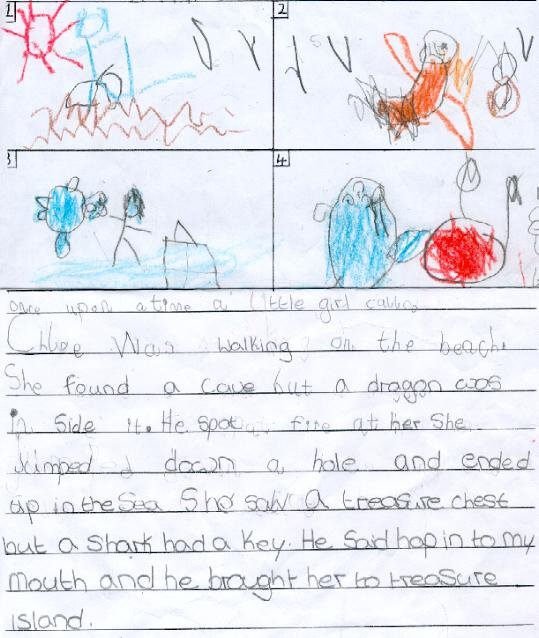 1 2
3 4
once upon a time a little girl
Chloe was walking on the beach.
She found a cave but a dragon was
in side it. He spat fire at her She
jumped down a hole and ended
up in the Sea She saw a treasure chest
but a shark had a key. He Said hop in to my
mouth and he brought her to treasure
island.